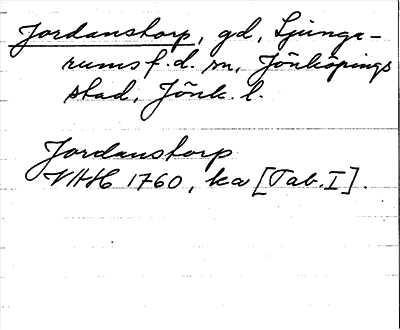 Jordanstorp, gd, Ljunga-
rums f.d. sn, Jönköpings
stad, Jönk. l.
Jordanstorp
VHH 1760, ka [Tab. I].